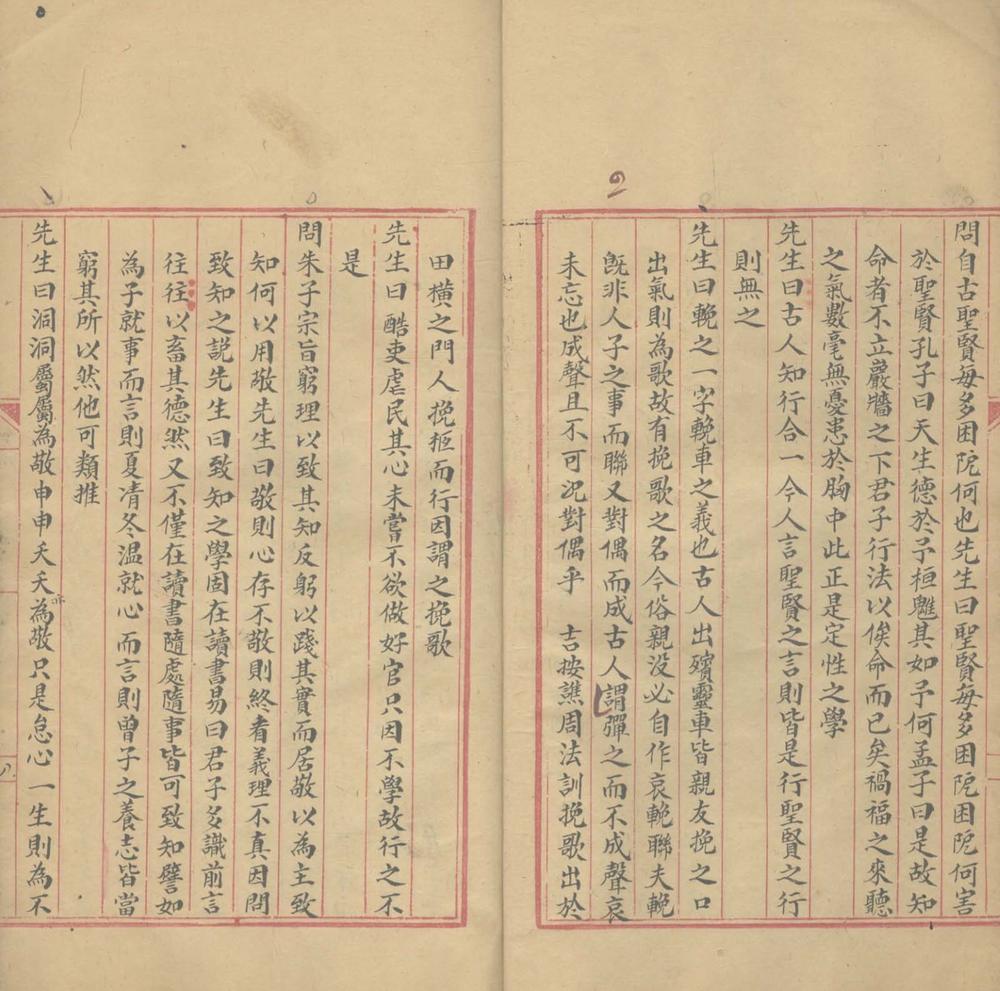 問自古聖賢每多困阨何也先生曰聖賢每多困阨困阨何害
於聖賢孔子曰天生德於予桓魋其如予何孟子曰是故知
命者不立巖牆之下君子行法以俟命而已矣禍福之來聽
之氣數毫無憂患於胸中此正是定性之學
先生曰古人知行合一今人言聖賢之言則皆是行聖賢之行
則無之
先生曰輓之一字輓車之義也古人出殯靈車皆親友挽之口
出氣則為歌故有挽歌之名今俗親没必自作哀輓聯夫輓
旣非人子之事而聯又對偶而成古人謂彈之而不成聲哀
未忘也成聲且不可況對偶乎 吉按譙周法訓挽歌出於
田横之門人挽柩而行因謂之挽歌
先生曰酷吏虐民其心未嘗不欲做好官只因不學故行之不
是
問朱子宗旨窮理以致其知反躬以踐其實而居敬以為主致
知何以用敬先生曰敬則心存不敬則終看義理不真因問
致知之説先生曰致知之學固在讀書易曰君子多識前言
往往以畜其德然又不僅在讀書隨處隨事皆可致知譬如
為子就事而言則夏凊冬温就心而言則曾子之養志皆當
窮其所以然他可類推
先生曰洞洞屬屬為敬申申夭夭亦為敬只是怠心一生則為不